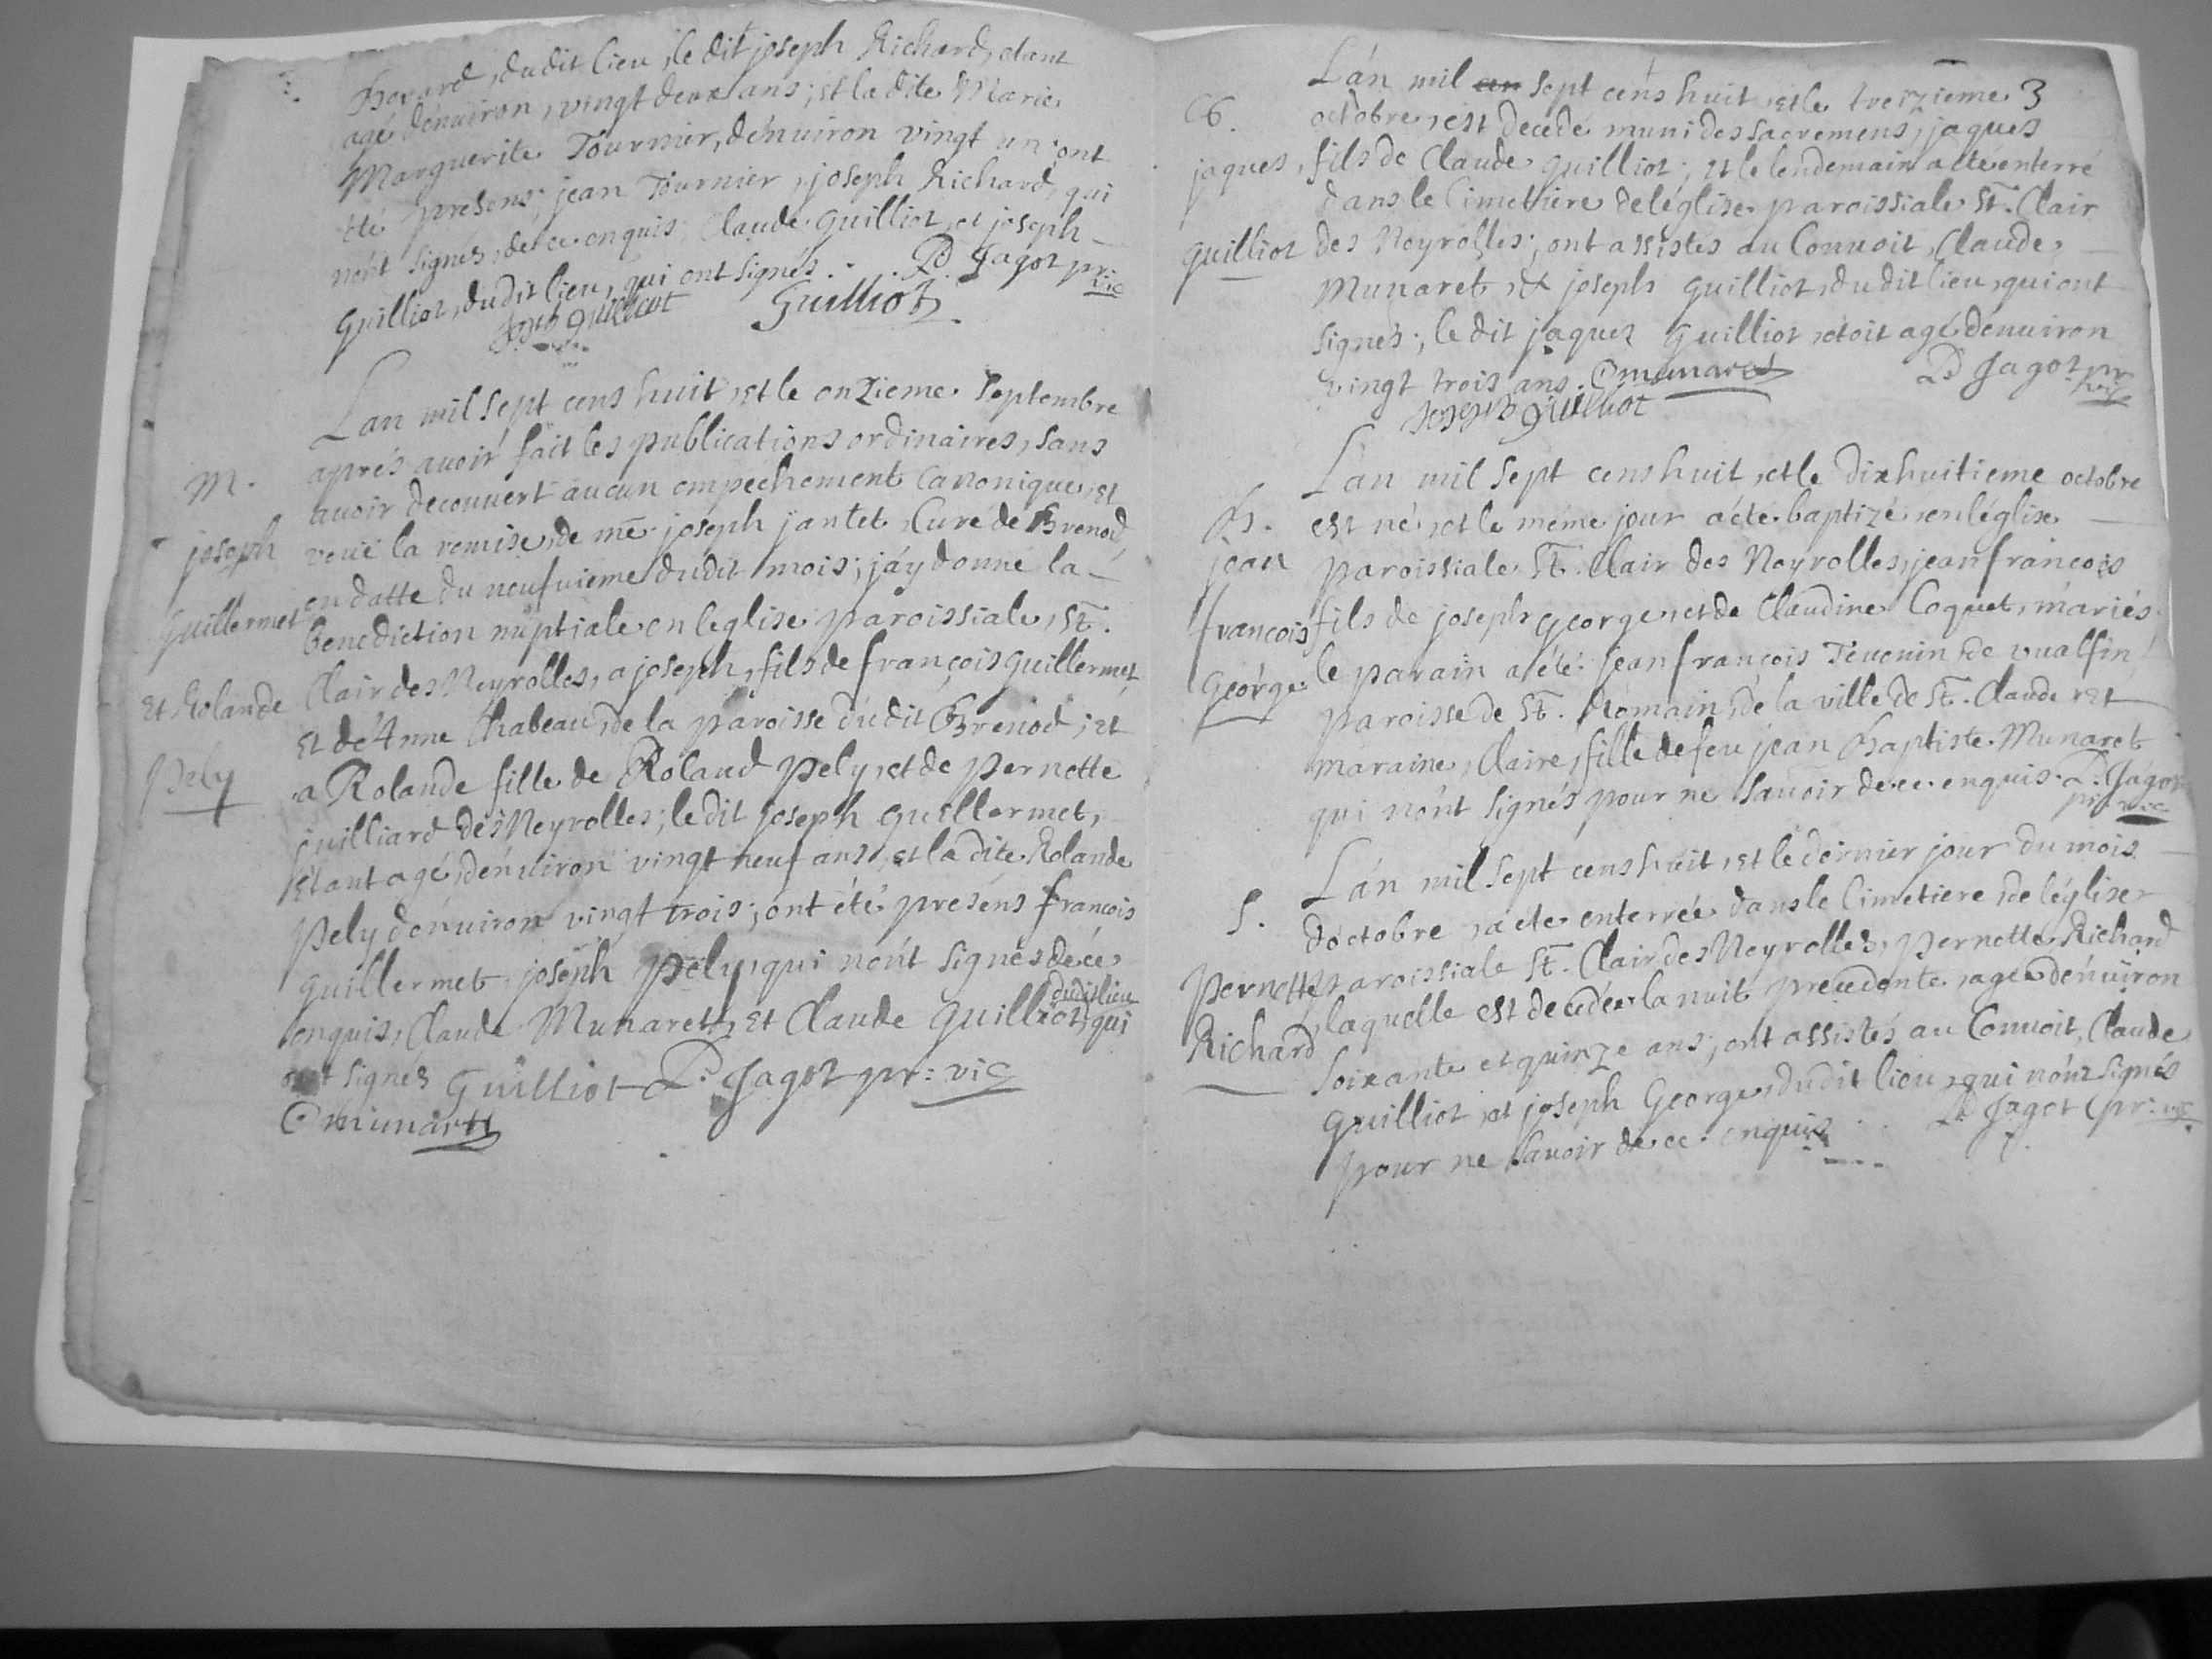 dudit lieu, le dit joseph Richard, etant
agé dénuiron, vingt deux ans; et la dite Marie
Marguerite Tournier, dénuiron vingt un; ont
été presens; jean Tournier, joseph Richard, qui
nónt signés, de ce enquis; Claude guilliot, et joseph
guilliot, dudit lieu, qui ont signés. P. Jagot pr: vic
joseph guilliot Guilliot
Lan mil sept cens huit, et le onzieme septembre
aprés auoir fait les publications ordinaires, sans
M.
auoir decouuert aucun empechement canonique, et
joseph
veüe la remise, de me joseph jantet, Curé de Brenod,
en datte du neufuieme dudit mois; jáy donné la
Guillermet
benediction nuptiale en leglise paroissiale, St.
Clair des Neyrolles, a joseph, fils de françois guillermet,
et Rolande
et de Anne Chabeau, de la paroisse dudit Brenod; et
a Rolande fille de Roland pely, et de pernette
pely
juilliard des Neyrolles; le dit joseph guillermet,
étant agé, dénuiron vingt neuf ans, et la dite Rolande
pely dénuiron vingt trois; ont été presens françois
guillermet joseph pely, qui nónt signés de ce
enquis, Claude Munaret, et Claude guilliot, dudit lieu qui
ont signés Guilliot P. Jagot pr: vic
C munaret
Lán mil an sept céns huit, et le treizieme 3
octobre, est decedé muni des sacremens, jaques
jaques,
fils de Claude guilliot; et le lendemain a été enterré
dans le Cimetiere de léglise paroissiale St. Clair
guilliot
des Neyrolles; ont assistés au Conuoit, Claude
Munaret, & joseph guilliot, dudit lieu, qui ont
signés; le dit jaques guilliot, etoit agé dénuiron
vingt trois ans. C munaret P Jagot pr vic
joseph guilliot
Lan mil sept cens huit, et le dixhuitieme octobre
B.
est né, et le méme jour a été baptizé, en léglise
jean
paroissiale St. Clair des Neyrolles, jean françois
francois
fils de joseph george, et de Claudine Coquet, mariés.
george
le parain a été jean françois Teuenin, de vualfin
paroisse de St. Romain, de la ville de St. Claude et
maraine, Claire, fille de feu jean Baptiste Munaret
qui nónt signés pour ne sauoir de ce enquis. P. Jagot
pr: vic
Lán mil sept cens huit, et le dernier jour du mois
S.
dóctobre, a éte enterrée dans le Cimetiere, de léglise
pernette
paroissiale St. Clair des Neyrolles, pernette Richard
laquelle est decedée la nuit precedente, agée dénuiron
Richard
soixante et quinze ans; ont assistés au Conuoit, Claude
guilliot, et joseph George, dudit lieu, qui nónt signés
pour ne sauoir de ce enquis P Jagot pr: vic